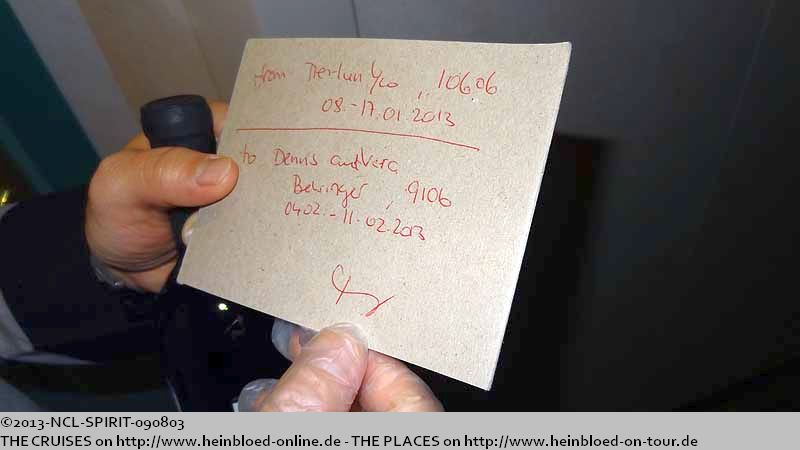 from
10606
08.-17.01.2013
to Dennis und Vera
Behringer, 9106
04.02.-11.02.2013
©2013-NCL-SPIRIT-090803
THE CRUISES on http://www.heinbloed-online.de - THE PLACES on http://www.heinbloed-on-tour.de